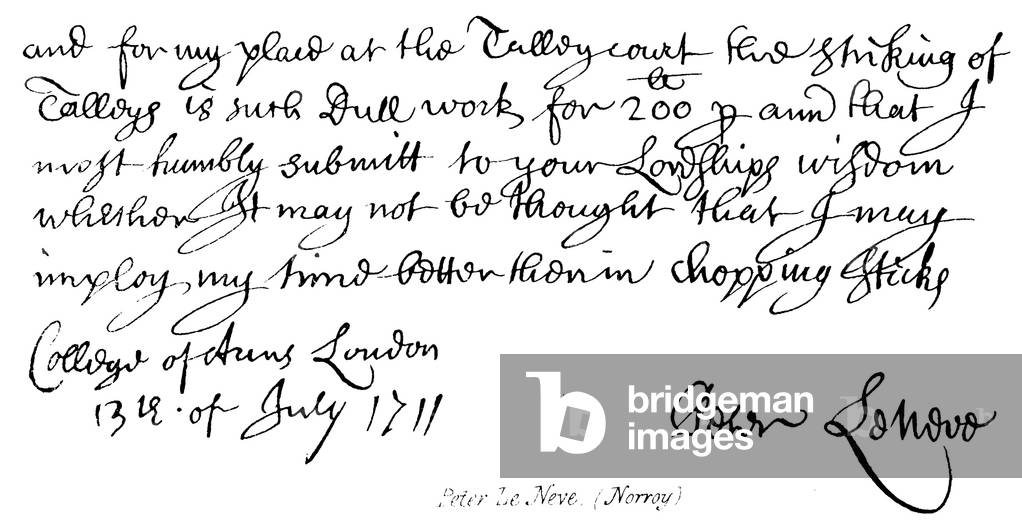 and for my place at the Talley court the striking of
Talleys is such Dull work for 200 li p ann that I
most humbly submitt to your Lordships wisdom
whether It may not be thought that I may
imploy my time better then in chopping sticks
College of Arms London
13th. of July 1711
Peter Le Neve
bridgeman
images
Peter Le Neve. (Norroy)